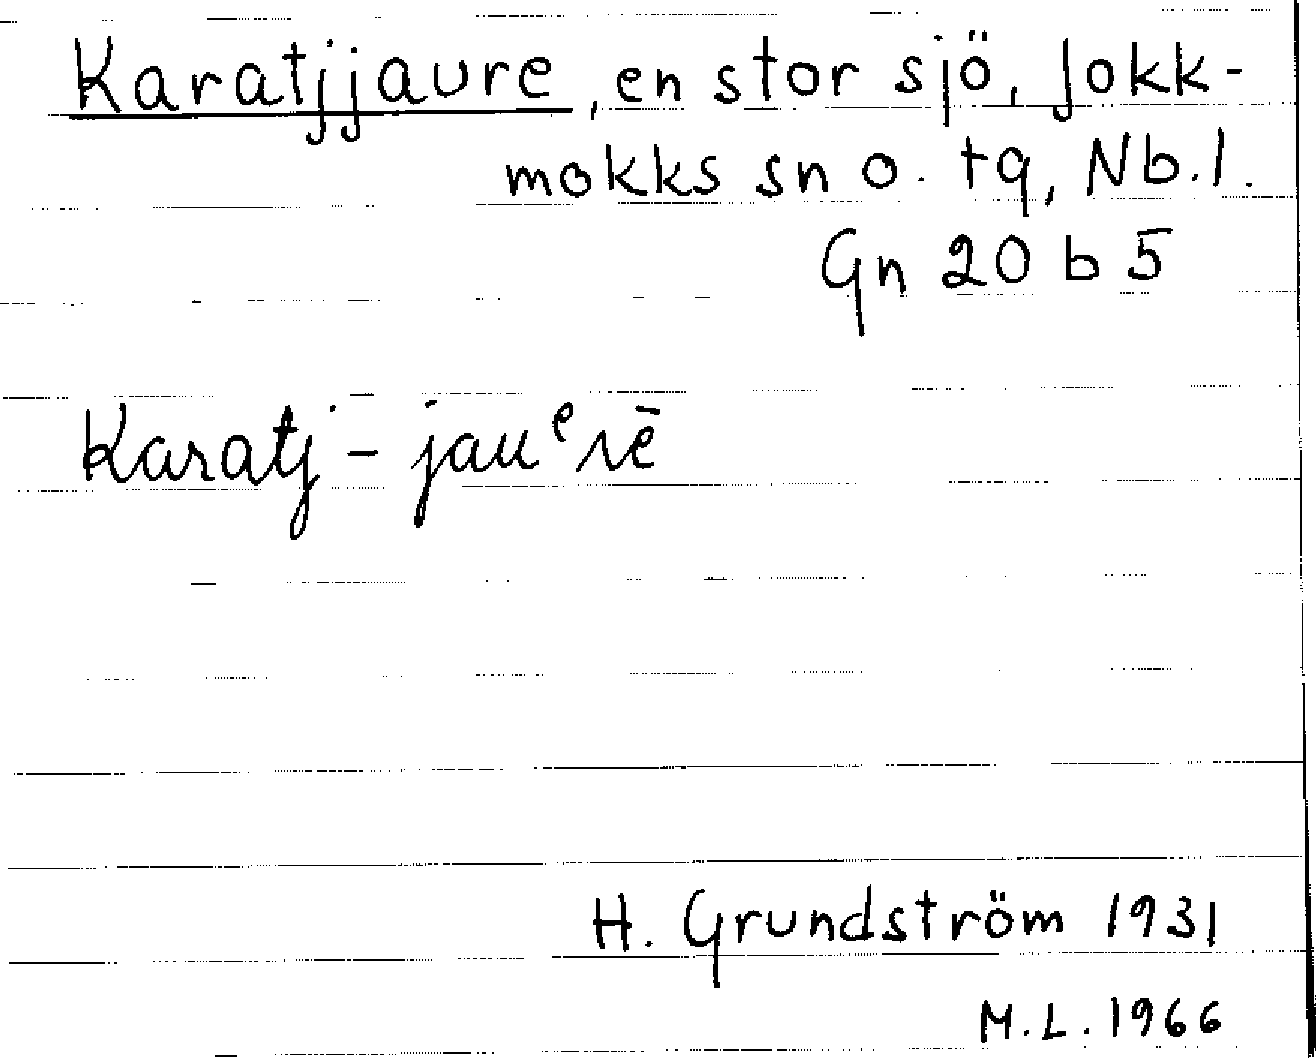 Karatjjaure, en stor sjö, Jokk-
mokks sn o. tq, Nb.l.
Gn 20 b 5
Karatj - jauᵉrē
H. Grundström 1931
M.L. 1966